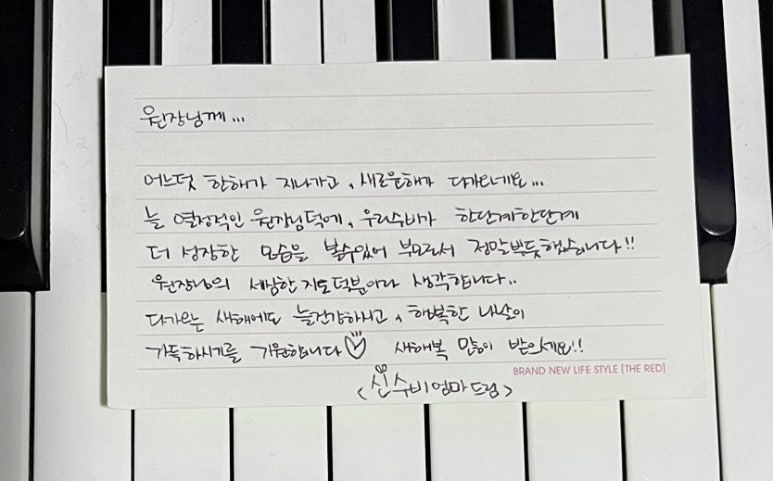 원장님께...
어느덧 한해가 지나가고, 새로운해가 다가오네요...
늘 열정적인 원장님덕에, 우리수비가 한단계한단계
더 성장한 모습을 볼수있어 부모로서 정말뿌듯했습니다!!
원장님의 세심한지도덕분이라 생각합니다..
다가오는 새해에도 늘건강하시고, 행복한 나날이
가득하시기를 기원합니다♡ 새해복 많이 받으세요!!
BRAND NEW LIFE STYLE [THE RED]
<신수비엄마드림>